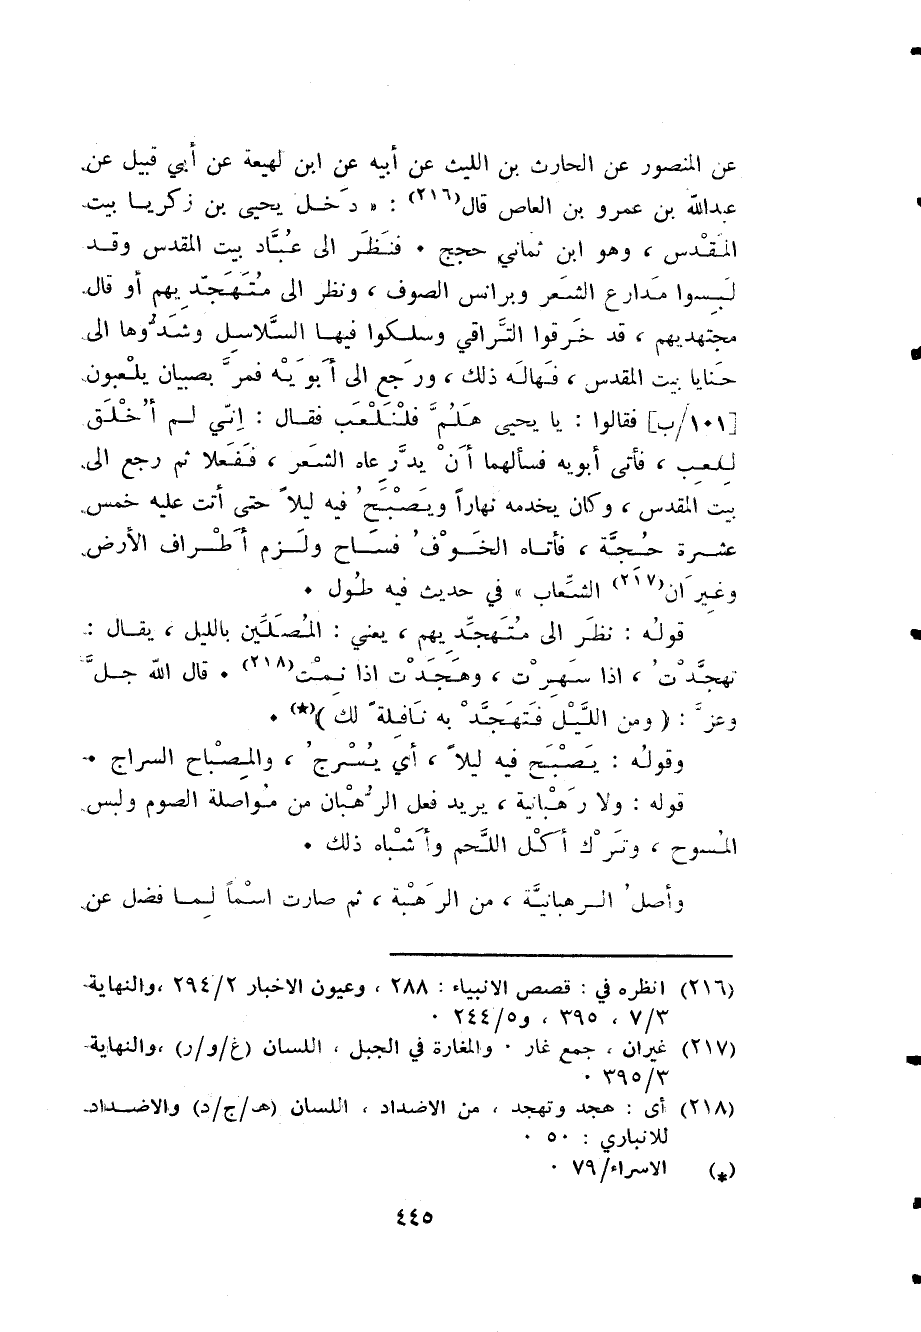 عن المنصور عن الحارث بن الليث عن أبيه عن ابن لهيعة عن أبي قبيل عن
عبدالله بن عمرو بن العاص قال(٢١٦) : « دَخل يحيى بن زكريا بيت
المَقْدس ، وهو ابن ثماني حجج ٠ فنَظَر الى عُبَّاد بيت المقدس وقد
لبسوا مَدارع الشعر وبرانس الصوف ، ونظر الى مُتَهَجّديهم أو قال
مجتهديهم ، قد خَرقوا التَّراقي وسلكوا فيها السَّلاسِل وشدُّوها الى
حَنايا بيت المقدس ، فهالَه ذلك ، ورَجع الى أبَوَيْه فمرَّ بصبيان يلعبون
[١٠١/ب] فقالوا : يا يحيى هَلُمَّ فلْنَلْعَب فقال : إنّي لم أُخْلَق
للعِب ، فأتى أبويه فسألهما أَنْ يدَّرعاه الشعَر ، ففَعلا ثم رجع الى
بيت المقدس ، وكان يخدمه نهاراً ويَصْبَحُ فيه ليلاً حتى أتت عليه خمس
عشرة حُجَّة ، فأتاه الخَوْفُ فسَاح ولَزم أطْراف الأرض
وغِيرَان(٢١٧) الشِّعاب » في حديث فيه طُول ٠
قولُه : نظَر الى مُتَهجِّديهم ، يعني : المُصَلَّين بالليل ، يقال :
تهجَّدْتُ ، اذا سَهِرْت ، وهَجَدْت اذا نمْت(٢١٨) ٠ قال الله جلَّ
وعزَّ : ( ومن اللَّيْل فَتهَجَّدْ به نَافِلةً لك )(★) ٠
وقولُه : يَصْبَح فيه ليلاً ، أي يُسْرِجُ ، والمِصْباح السراج ٠
قوله : ولا رَهْبانية ، يريد فعل الرُهْبان من مُواصلة الصوم ولبس
المُسوح ، وتَرْك أكْل اللَّحم وأشْباه ذلك ٠
وأصلُ الرهبانيَّة ، من الرَهْبَة ، ثم صارت اسْماً لما فضل عن
(٢١٦) انظره في : قصص الانبياء : ٢٨٨ ، وعيون الاخبار ٢٩٤/٢ ،والنهاية
٧/٣ ، ٣٩٥ ، و٢٤٤/٥ ٠
(٢١٧) غيران ، جمع غار ٠ والمغارة في الجبل ، اللسان (غ/و/ر) ،والنهاية
٣٩٥/٣ ٠
(٢١٨) أى : هجد وتهجد ، من الاضداد ، اللسان (هـ/ج/د) والاضداد
للانباري : ٥٠ ٠
(*) الاسراء/٧٩ ٠
٤٤٥